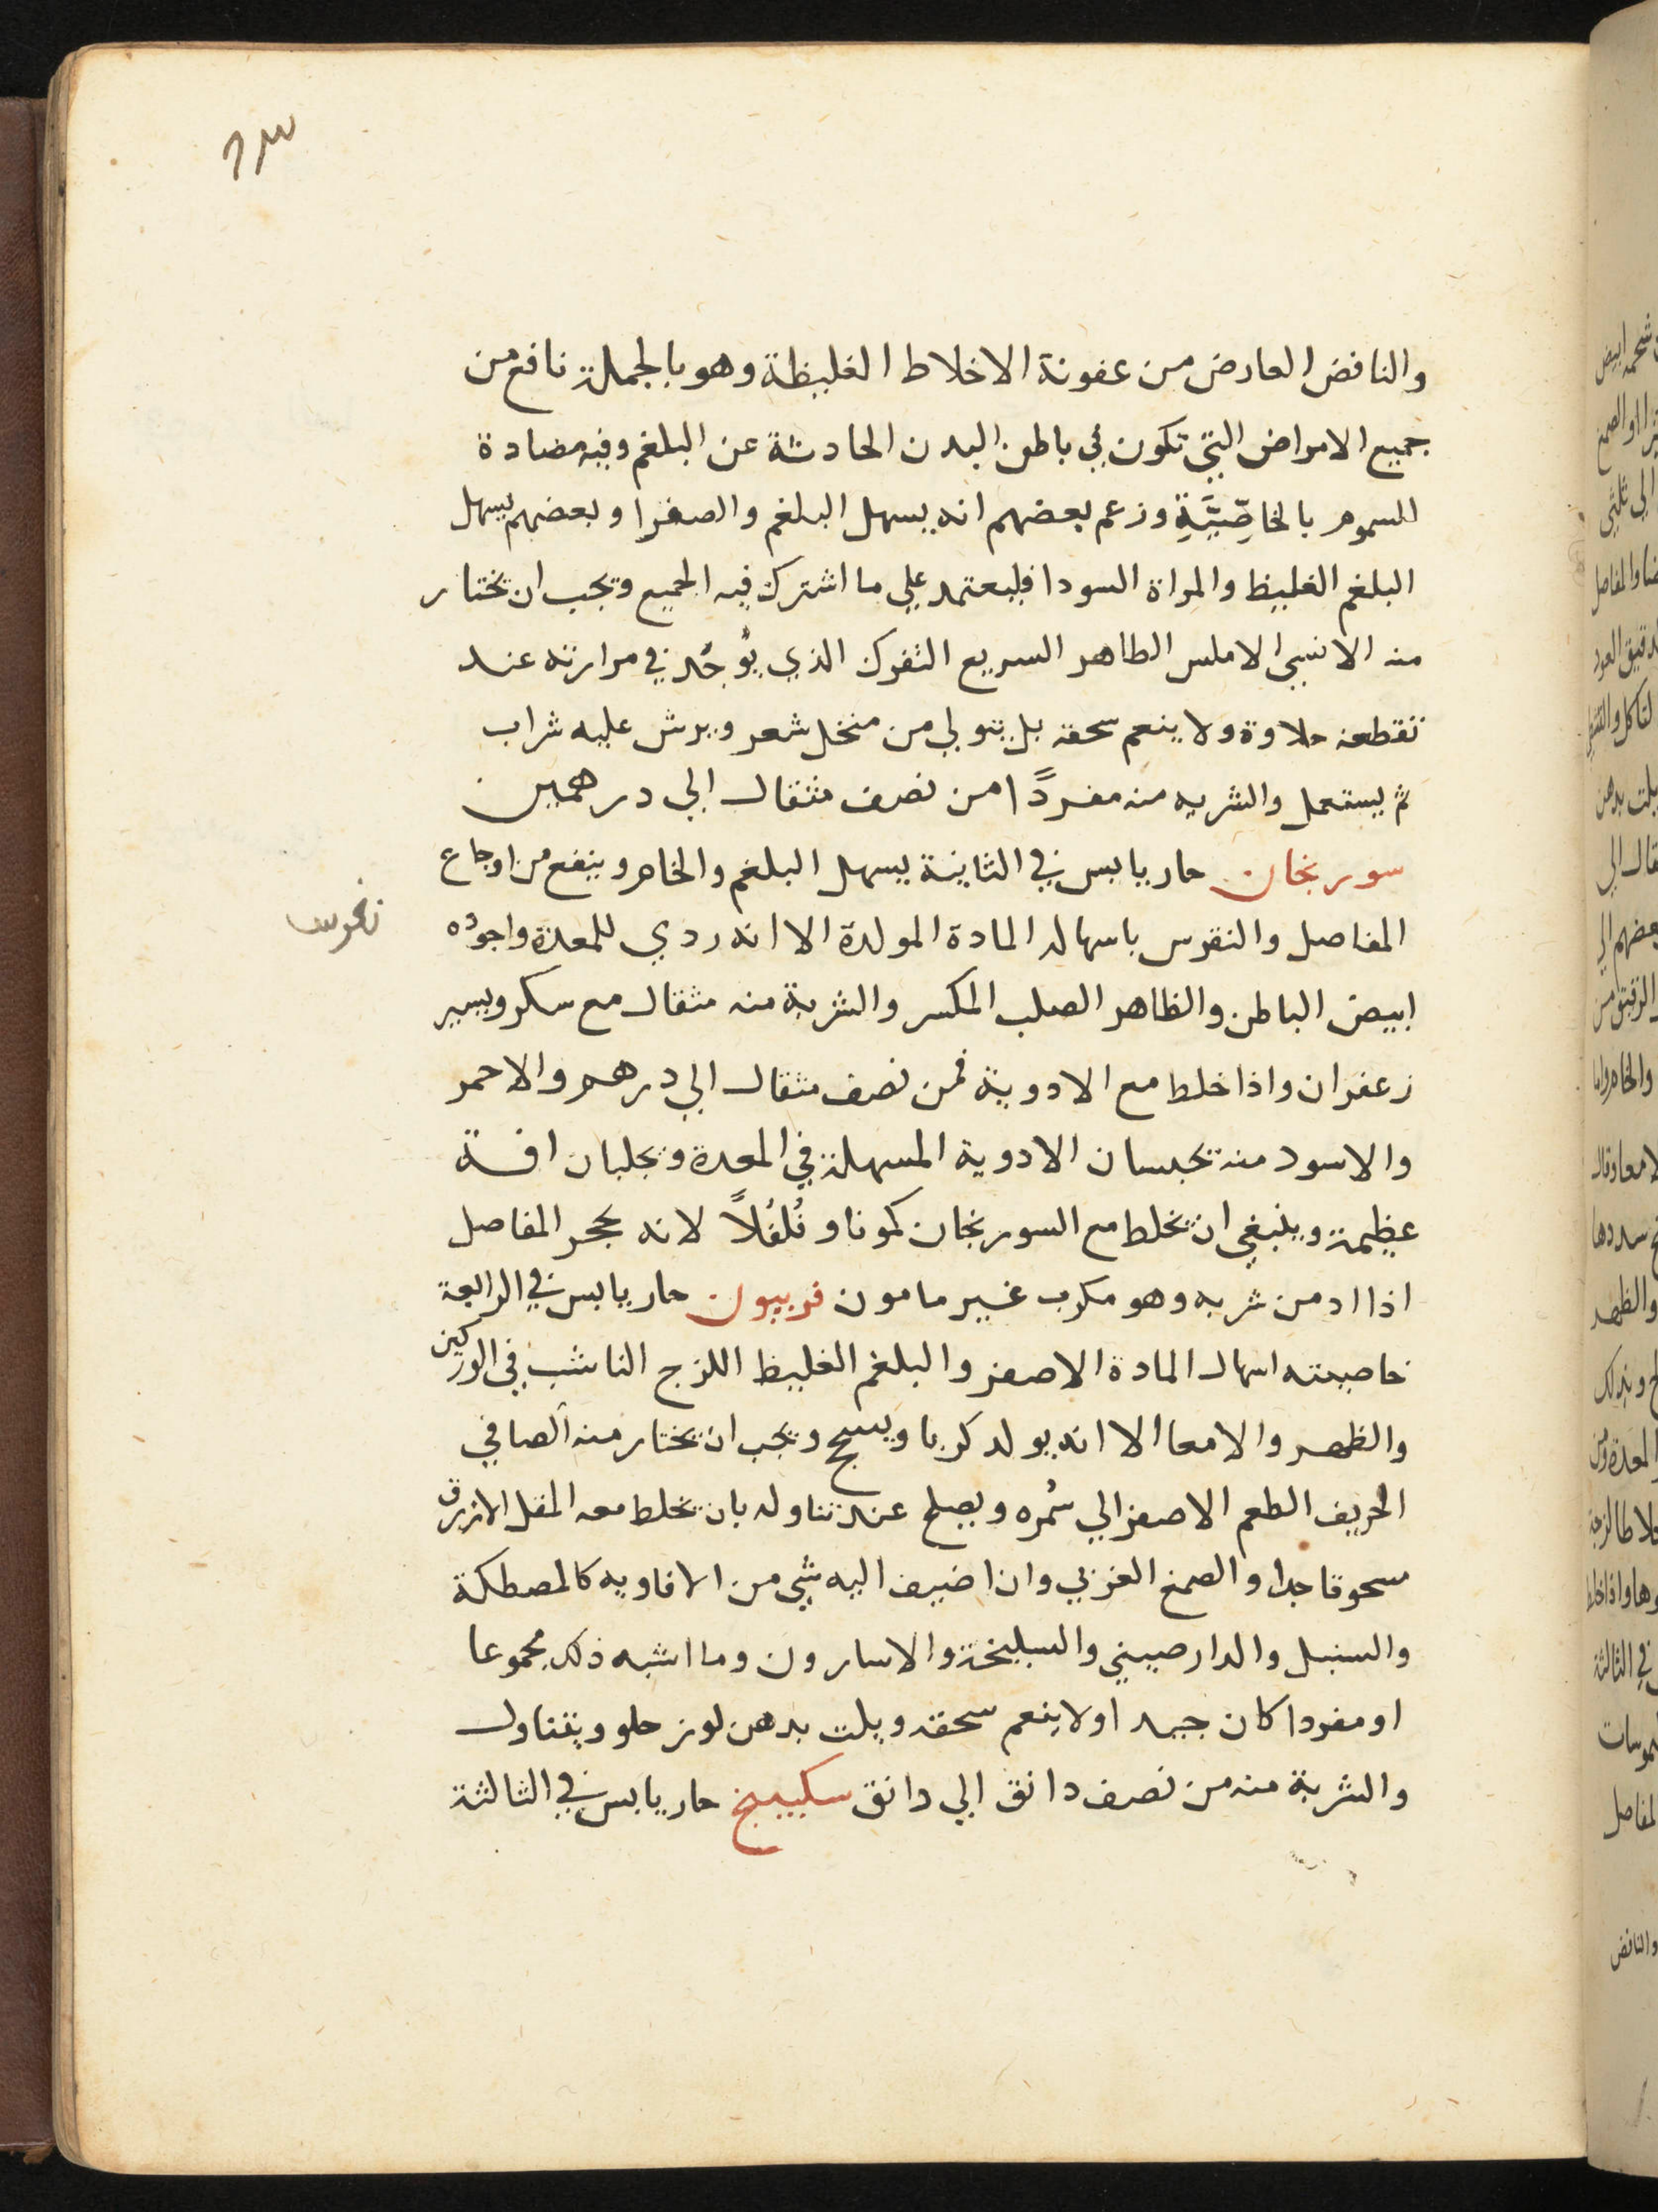 والنافض العارض من عفونة الاخلاط الغليظة وهو بالجملة نافع من
جميع الامراض التي تكون في باطن البدن الحادثة عن البلغم وفيه مضادة
للسموم بالخاصِّيَّةِ وزعم بعضهم انه يسهل البلغم والصفرا وبعضهم يسهل
البلغم الغليظ والمراة السودا فليعتمد علي ما اشترك فيه الجميع ويجب ان يختار
منه الاملس الطاهر السريع التفرك الذي يُوجَد في مرارته عند
تقطعه حلاوة ولا ينعم سحقه بل يتولي من منخل شعر ويرش عليه شراب
ثم يستعمل والشربه منه مفردًا من نصف مثقال الي درهمين
سورنجان حار يابس في الثانية يسهل البلغم والخام وينفع من اوجاع
المفاصل والنقرس باسهاله المادة المولدة الا انه ردي للمعدة واجوده
ابيض الباطن والظاهر الصلب المكسر والشربة منه مثقال مع سكر ويسير
زعفران واذا خلط مع الادوية فمن نصف مثقال الي درهم والاحمر
والاسود منه يحبسان الادوية المسهلة في المعدة ويجلبان افة
عظيمة وينبغي ان يخلط مع السورنجان كمونا وفُلفُلاً لانه يحجر المفاصل
اذا ادمن شربه وهو مكرب غير مامون فربيون حار يابس في الرابعة
خاصيته اسهال المادة الاصفر والبلغم الغليظ اللزج الناشب في الوركين
والظهر والامعا الا انه يولد كربا ويسحج ويجب ان يختار منه الصافي
الحريف الطعم الاصفر الي سُمره ويصلح عند تناوله بان يخلط معه المقل الازرق
مسحوقا جدا والصمغ العربي وان اضيف اليه شي من الافاويه كالمصطكة
والسنبل والدارصيني والسليخة والاسارون وما اشبه ذلك مجموعا
او مفردا كان جيد اولا ينعم سحقه ويلت بدهن لوز حلو ويتناول
والشربة منه من نصف دانق الي دانق سكبينج حار يابس في الثالثة
نقرس